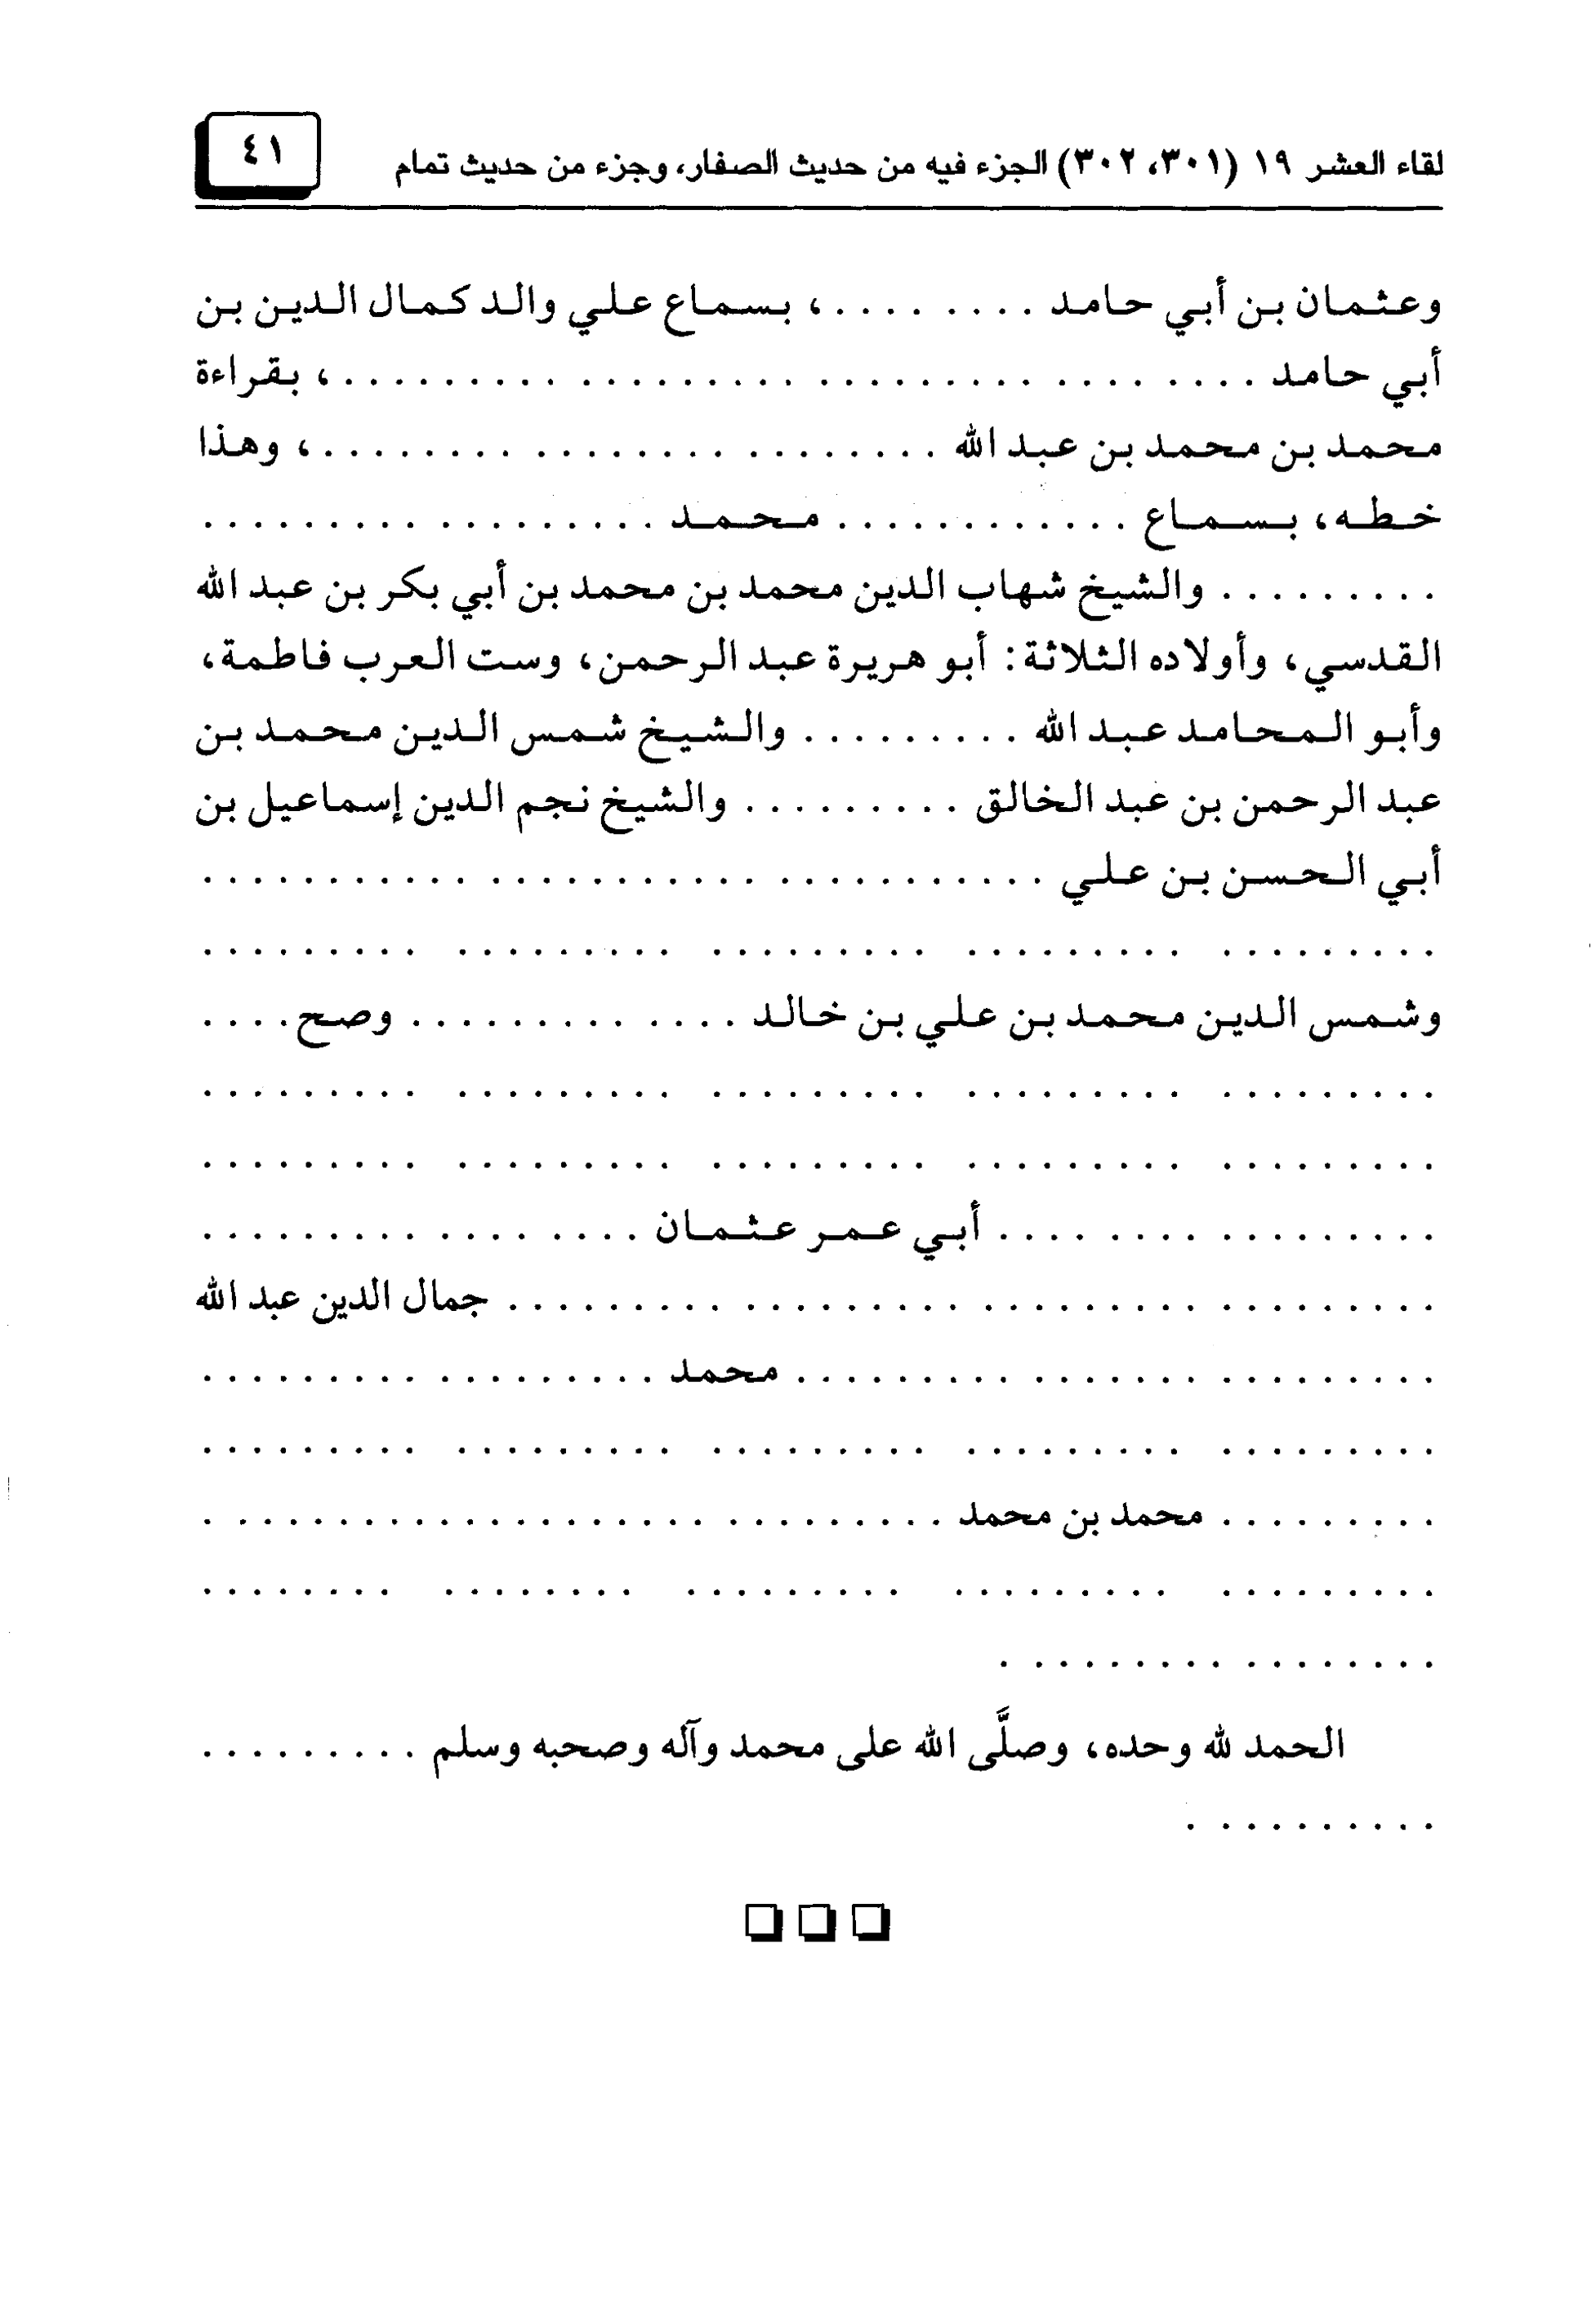 لقاء العشر ١٩ (٣٠١، ٣٠٢) الجزء فيه من حديث الصفار، وجزء من حديث تمام ٤١
وعثمان بن أبي حامد . . . . . . . . .، بسماع علي والد كمال الدين بن
أبي حامد . . . . . . . . . . . . . . . . . . . . . . . . . . . . . . . . . . .، بقراءة
محمد بن محمد بن عبد الله . . . . . . . . . . . . . . . . . . . . . . . .، وهذا
خطه، بسماع . . . . . . . . . . . . محمد . . . . . . . . . . . . . . . . . .
. . . . . . . . . والشيخ شهاب الدين محمد بن محمد بن أبي بكر بن عبد الله
القدسي، وأولاده الثلاثة: أبو هريرة عبد الرحمن، وست العرب فاطمة،
وأبو المحامد عبد الله . . . . . . . . . والشيخ شمس الدين محمد بن
عبد الرحمن بن عبد الخالق . . . . . . . . . والشيخ نجم الدين إسماعيل بن
أبي الحسن بن علي . . . . . . . . . . . . . . . . . . . . . . . . . . . . . . . .
. . . . . . . . . . . . . . . . . . . . . . . . . . . . . . . . . . . . . . . . . . . . .
وشمس الدين محمد بن علي بن خالد . . . . . . . . . . . . . وصح . . . .
. . . . . . . . . . . . . . . . . . . . . . . . . . . . . . . . . . . . . . . . . . . . .
. . . . . . . . . . . . . . . . . . . . . . . . . . . . . . . . . . . . . . . . . . . . .
. . . . . . . . . . . . . . . . . أبي عمر عثمان . . . . . . . . . . . . . . . . .
. . . . . . . . . . . . . . . . . . . . . . . . . . . . . . . . . . . . جمال الدين عبد الله
. . . . . . . . . . . . . . . . . . . . . . . . . محمد . . . . . . . . . . . . . . . . . .
. . . . . . . . . . . . . . . . . . . . . . . . . . . . . . . . . . . . . . . . . . . . .
. . . . . . . . . محمد بن محمد . . . . . . . . . . . . . . . . . . . . . . . . . . . . .
. . . . . . . . . . . . . . . . . . . . . . . . . . . . . . . . . . . . . . . . . . .
. . . . . . . . . . . . . . . . .
الحمد لله وحده، وصلَّى الله على محمد وآله وصحبه وسلم . . . . . . . . .
. . . . . . . . . .